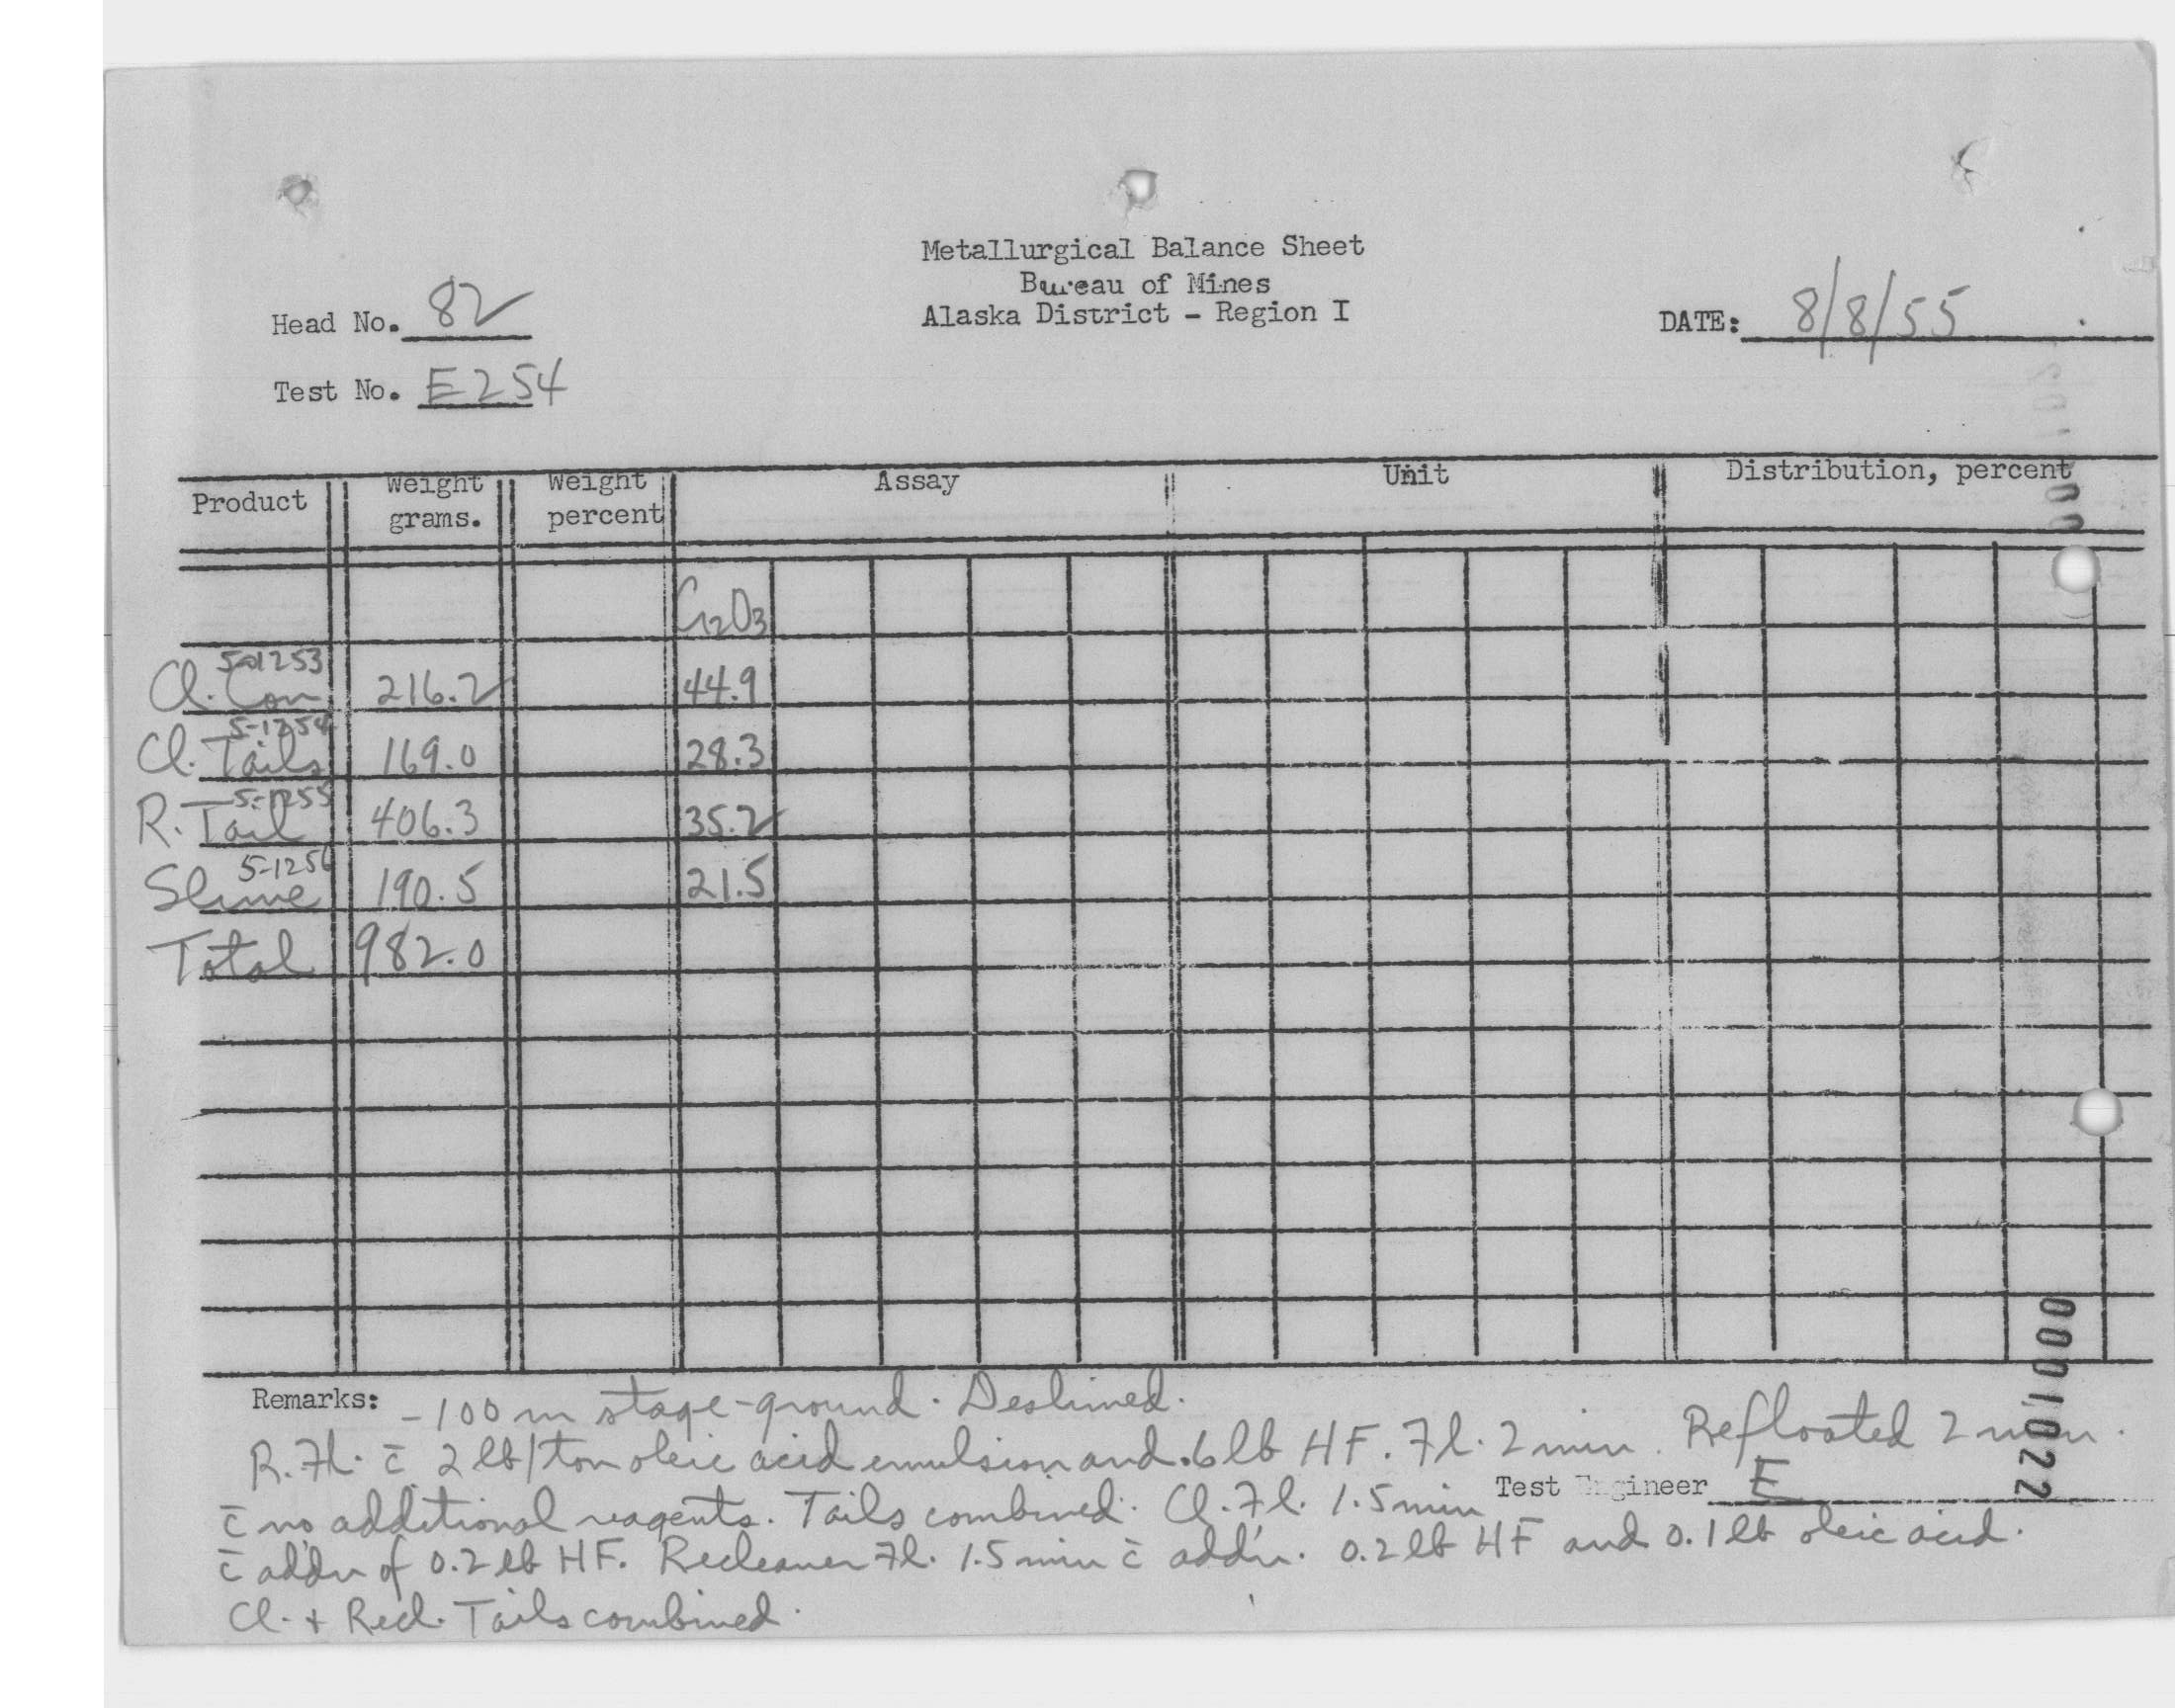 Metallurgical Balance Sheet
Bureau of Mines
Alaska District - Region I
Head No. 82
DATE: 8/8/55
Test No. E254
Product Weight grams. Weight percent Assay Unit Distribution, percent
Cr2O3
5-1253
Cl. Con 216.2 44.9
5-1254
Cl. Tails 169.0 28.3
5-1255
R. Tail 406.3 35.2
5-1256
Slime 190.5 21.5
Total 982.0
Remarks: -100 m stage-ground. Deslimed.
R. Fl. c̄ 2 lb/ton oleic acid emulsion and .6 lb HF. Fl. 2 min. Refloated 2 min.
Test Engineer E
c̄ no additional reagents. Tails combined. Cl. Fl. 1.5 min
c̄ addn of 0.2 lb HF. Recleaner Fl. 1.5 min c̄ addn. 0.2 lb HF and 0.1 lb oleic acid.
Cl. + Recl. Tails combined.
0001022